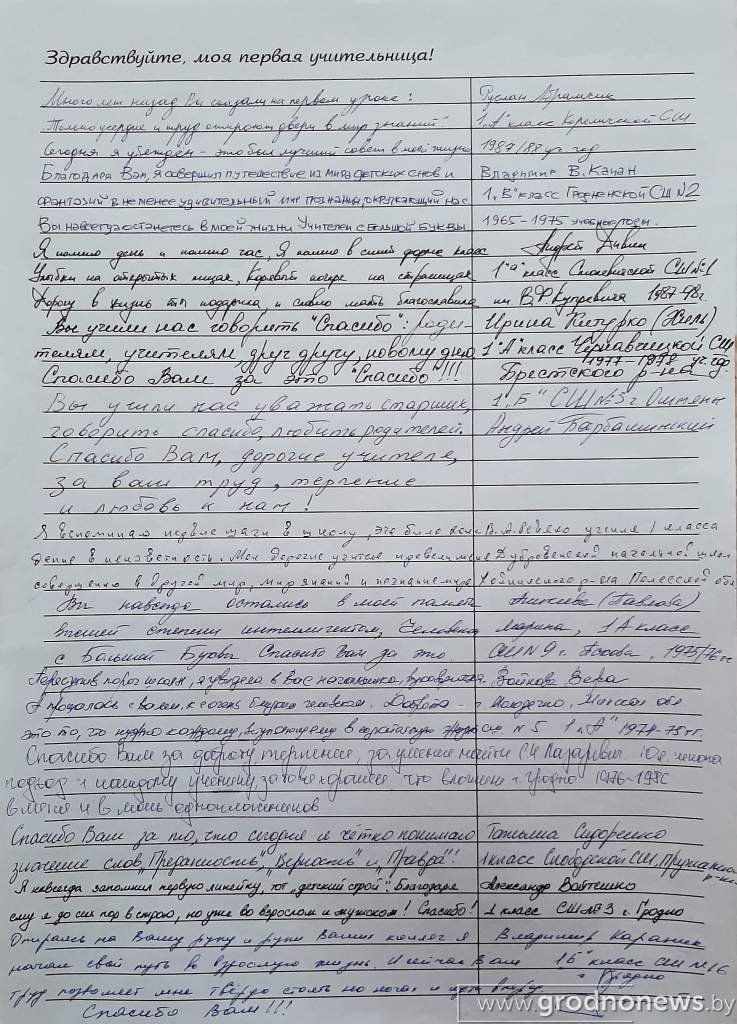 Здравствуйте, моя первая учительница!
Много лет назад Вы сказали на первом уроке: Руслан Абрамчик
"Только усердие и труд откроют двери в мир знаний". 1 "А" класс Кореличской СШ
Сегодня я убеждён - это был лучший совет в моей жизни 1987/88 уч. год
Благодаря Вам, я совершил путешествие из мира детских снов и Владимир В. Качан
фантазий в не менее удивительный мир познания, окружающий нас. 1 "Б" класс Гродненской СШ №2
Вы навсегда останетесь в моей жизни Учителем с большой буквы 1965-1975 учебные годы.
Я помню день и помню час, Я помню в синей форме класс Андрей
Улыбки на открытых лицах, Корявый почерк на страницах 1 "а" класс Смолевичской СШ №1
Дорогу в жизнь ты подарила, и словно мать благословила им. В.Ф. Купревича 1987-88г.
Вы учили нас говорить "Спасибо": роди- Ирина Китурко (Жель)
телям, учителям, друг другу, новому дню 1 "А" класс Чернавчицкой СШ
Спасибо Вам за это "Спасибо"!!! 1977-1978 уч. год Брестского р-на
Вы учили нас уважать старших, 1 "Б" СШ №3 г. Ошмяны
говорить спасибо, любить родителей. Андрей Барбашинский
Спасибо Вам, дорогие учителя,
за ваш труд, терпение
и любовь к нам!
Я вспоминаю первые шаги в школу, это было В.А. ученик 1 класса
дение в неизвестность. Мои дорогие учителя Дубровенской начальной школы
совершенно в другой мир, мир знаний и Хойникского р-на Полесской обл
Вы навсегда остались в моей памяти (Павлова)
высшей степени интеллигентом, Человеком Марина, 1 А класс
с Большой Буквы. Спасибо Вам за это. СШ №9 г. 1975/76 гг
Переступив порог школы, я увидела в Вас наставника, Войнова Вера
А прощалась с Вами, как с очень близким человеком. Доброта - г. Молодечно, Минская обл
это то, что нужно каждому, вступающему в СШ №5 1 "А" 1974-75 гг.
Спасибо Вам за доброту, терпение, за умение найти
подход к каждому ученику, за то хорошее что вложили г. Гродно 1976-1986
в меня и в моих одноклассников.
Спасибо Вам за то, что сегодня я чётко понимаю Татьяна Сидоренко
значение слов "Преданность", "Верность" и "Правда"! 1 класс Слободской СШ, Пружанского р-на
Я навсегда запомнил первую линейку, тот "детский строй". Благодаря Александр Войтешко
ему я до сих пор в строю, но уже во взрослом и мужском! Спасибо! 1 класс СШ №3 г. Гродно
Опираясь на Вашу руку и руки Ваших коллег я Владимир Караник
начал свой путь во взрослую жизнь. И сейчас Ваш 1 "Б" класс СШ №16
труд позволяет мне твёрдо стоять на ногах и идти вперёд. г. Гродно
Спасибо Вам!!!
www.grodnonews.by